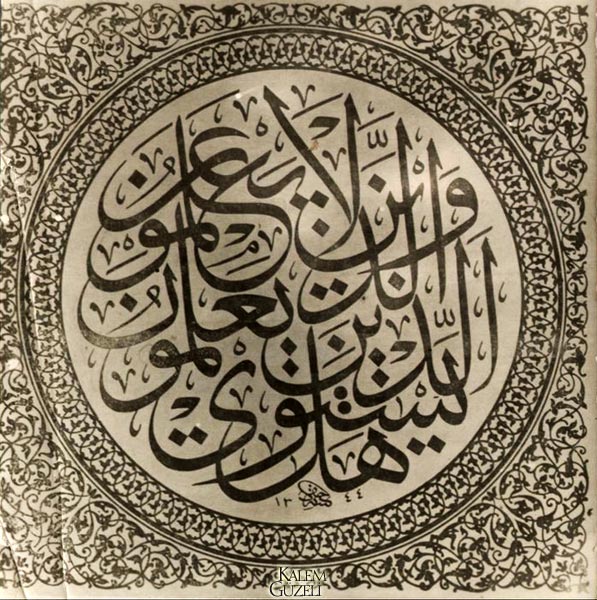 هل يستوي الذين يعلمون والذين لا يعلمون
١٣٤٤
KALEM
GÜZELİ